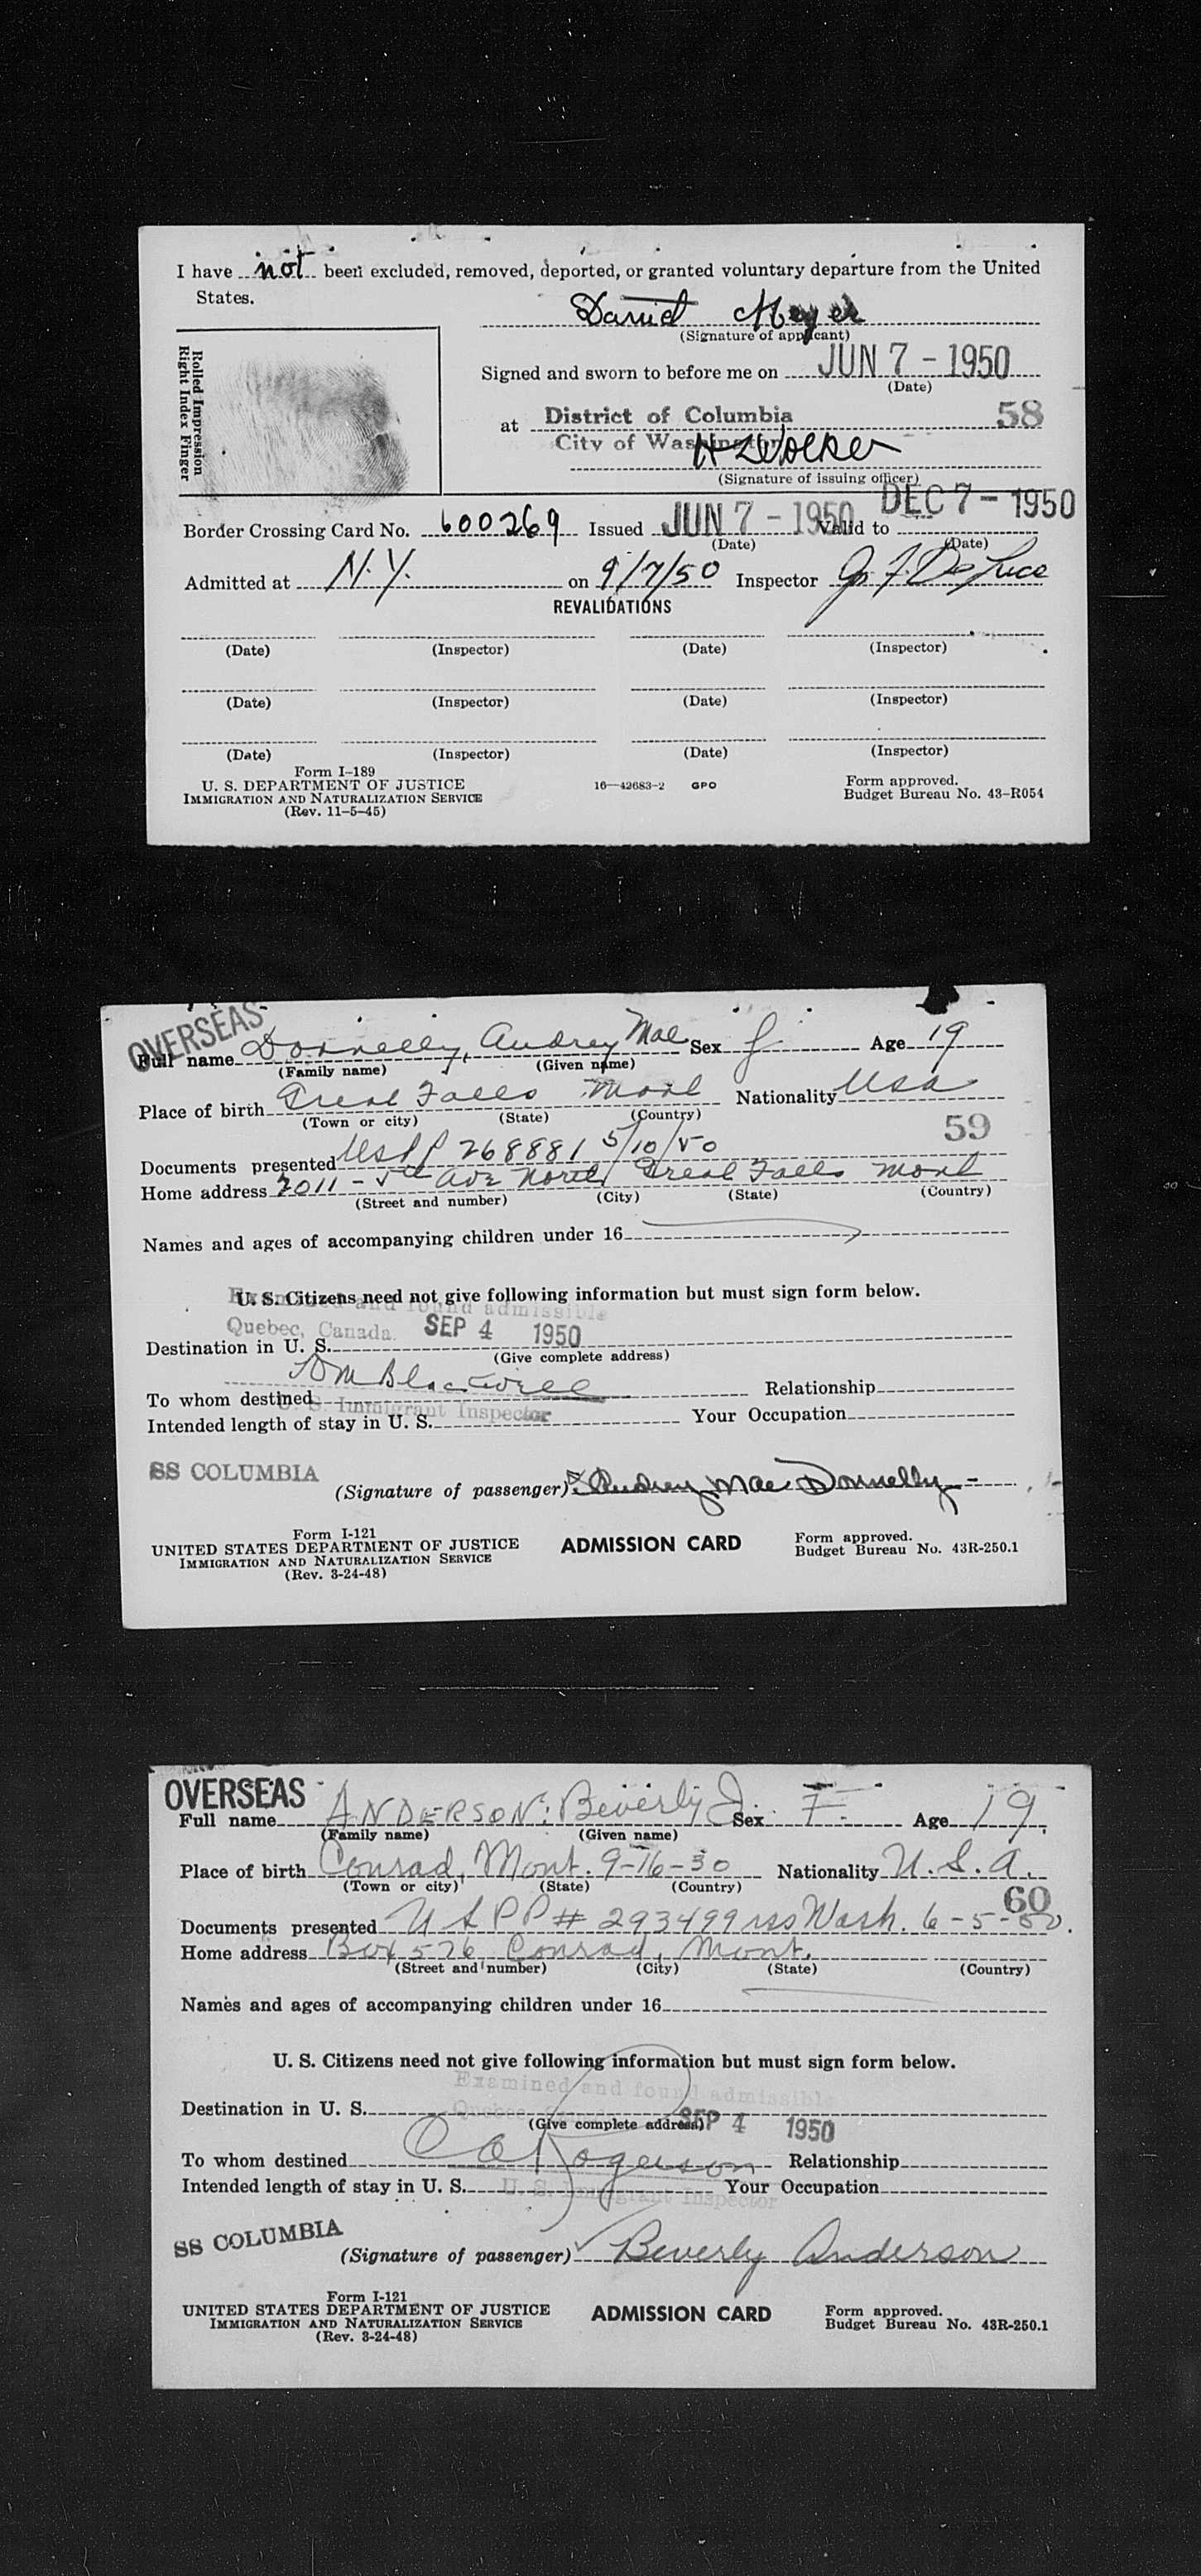 I have not been excluded, removed, deported, or granted voluntary departure from the United
States.
David Meyer
(Signature of applicant)
Rolled Impression
Right Index Finger
Signed and sworn to before me on JUN 7 - 1950
(Date)
58
at District of Columbia
City of Washington
(Signature of issuing officer)
Border Crossing Card No. 600269 Issued JUN 7 - 1950 Valid to DEC 7 - 1950
(Date) (Date)
Admitted at N.Y. on 9/7/50 Inspector
REVALIDATIONS
(Date) (Inspector) (Date) (Inspector)
(Date) (Inspector) (Date) (Inspector)
(Date) (Inspector) (Date) (Inspector)
Form I-189
U. S. DEPARTMENT OF JUSTICE 16—42683-2 GPO Form approved.
IMMIGRATION AND NATURALIZATION SERVICE Budget Bureau No. 43-R054
(Rev. 11-5-45)
OVERSEAS
Full name Donnelly, Audrey Mae Sex f Age 19
(Family name) (Given name)
Place of birth Great Falls Mont Nationality USA
(Town or city) (State) (Country)
59
Documents presented USPP 268881 5/10/50
Home address 2011 - 5th Ave North Great Falls Mont
(Street and number) (City) (State) (Country)
Names and ages of accompanying children under 16
U. S. Citizens need not give following information but must sign form below.
Examined and found admissible
Quebec, Canada. SEP 4 1950
Destination in U. S.
(Give complete address)
To whom destined Relationship
U. S. Immigrant Inspector
Intended length of stay in U. S. Your Occupation
SS COLUMBIA
(Signature of passenger) Audrey Mae Donnelly
Form I-121
UNITED STATES DEPARTMENT OF JUSTICE ADMISSION CARD Form approved.
IMMIGRATION AND NATURALIZATION SERVICE Budget Bureau No. 43R-250.1
(Rev. 3-24-48)
OVERSEAS
Full name ANDERSON: Beverly J. Sex F. Age 19.
(Family name) (Given name)
Place of birth Conrad, Mont. 9-16-30 Nationality U.S.A.
(Town or city) (State) (Country)
60
Documents presented USPP # 293499 iss Wash. 6-5-50.
Home address Box 576 Conrad, Mont.
(Street and number) (City) (State) (Country)
Names and ages of accompanying children under 16
U. S. Citizens need not give following information but must sign form below.
Examined and found admissible
Destination in U. S.
Quebec, Canada
(Give complete address) SEP 4 1950
To whom destined Relationship
Intended length of stay in U. S. Your Occupation
U. S. Immigrant Inspector
SS COLUMBIA
(Signature of passenger) Beverly Anderson
Form I-121
UNITED STATES DEPARTMENT OF JUSTICE ADMISSION CARD Form approved.
IMMIGRATION AND NATURALIZATION SERVICE Budget Bureau No. 43R-250.1
(Rev. 3-24-48)